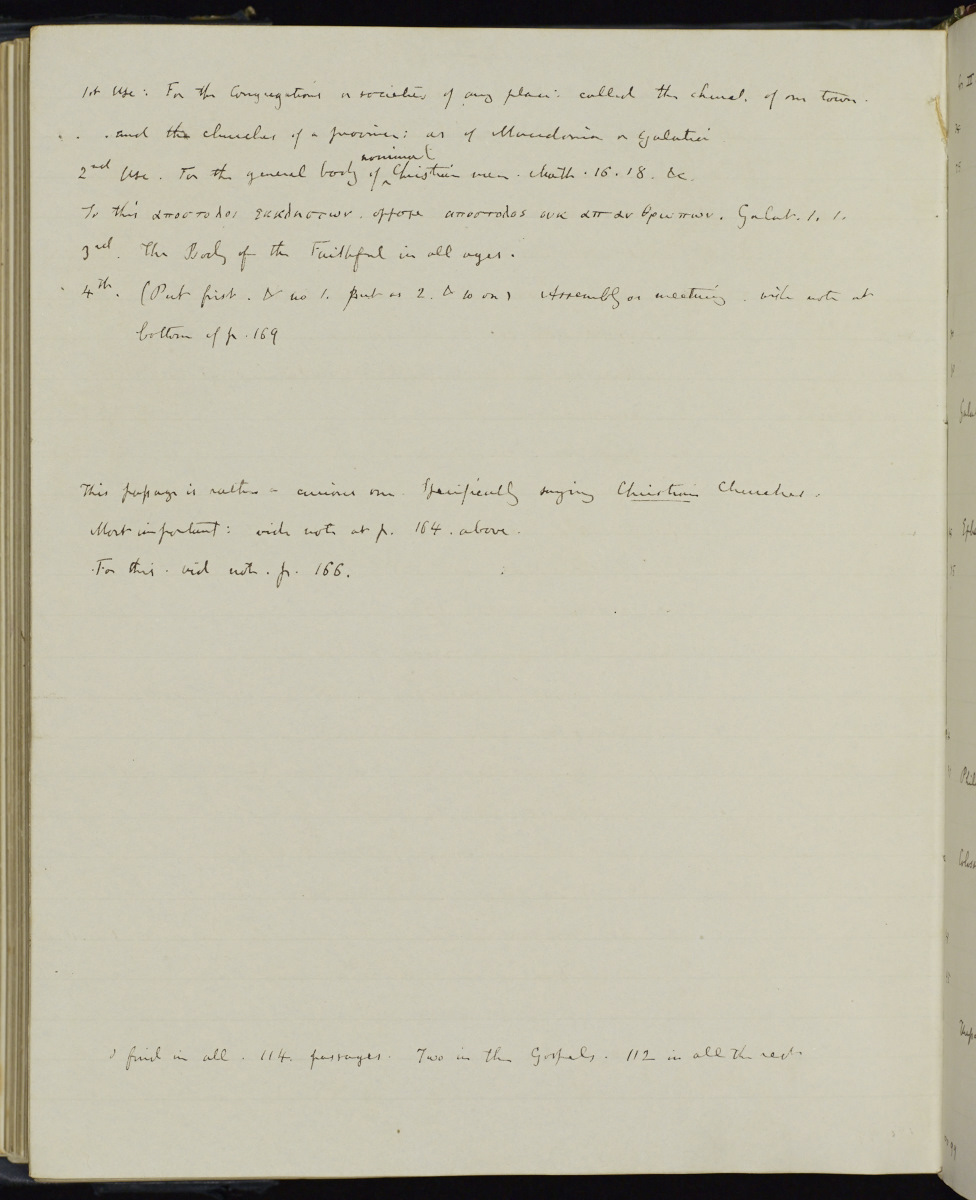 1st Use: For the Congregations or societies of any place: called the church of one town.
. . . and the churches of a province: as of Macedonia or Galatia
nominal
2nd Use. For the general body of ‸ Christian men. Matth. 16. 18. &c.
To this αποστολοι εκκλησιων. oppose αποστολος ουκ απ αν θρωπων. Galat. 1. 1.
3rd. The Body of the Faithful in all ages.
4th. (Put first. & no 1. put as 2. & so on) Assembly or meeting. vide note at
bottom of p. 169
This passage is rather a curious one. Specifically saying Christian Churches.
Most important: vide note at p. 164. above.
For this. vid note. p. 166.
I find in all. 114. passages. Two in the Gospels. 112 in all the rest